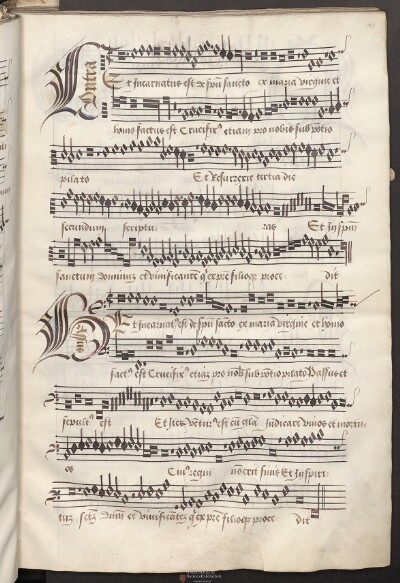 Contra
Et Incarnatus est de spū sancto ex maria virgine et
homo factus est Crucifix⁹ etiam pro nobis sub potio
pilato Et Resurrexit tertia die
secundum scriptu ras Et In spū
sanctum dominum et vivificantē q̇ ex pr̄e filioq̄ proce dit
Bassus
Et Incarnat⁹ est de spū sācto ex maria virgine et homo
fact⁹ est Crucifix⁹ etiaȝ pro nob̄ sub potio pilato Passus et
sepult⁹ est Et Iteȝ vētur⁹ est cū glīa Iudicare vivos et mortu
os Cui⁹ regni nō erit finis Et In spiri
tuȝ sctȝ dnm et vivificātēȝ q̇ ex pr̄e filioq̄ proce dit